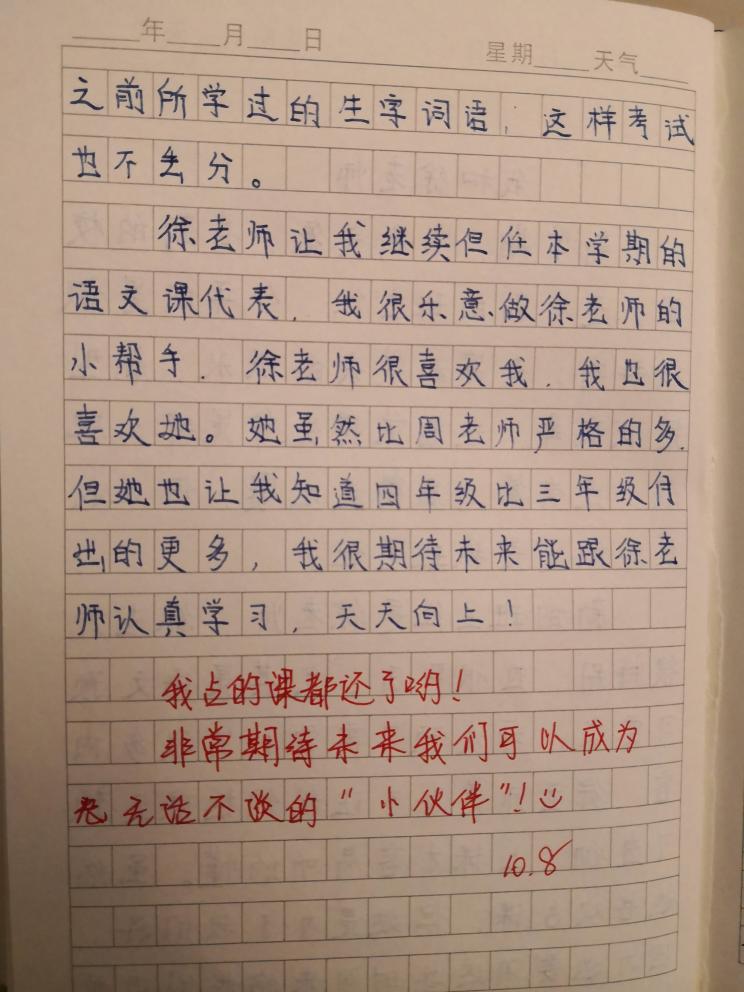 年 月 日 星期 天气
之前所学过的生字词语,这样考试
也不丢分。
徐老师让我继续但任本学期的
语文课代表,我很乐意做徐老师的
小帮手,徐老师很喜欢我,我也很
喜欢她。她虽然比周老师严格的多,
但她也让我知道四年级比三年级付
出的更多,我很期待未来能跟徐老
师认真学习,天天向上!
我点的课都还了哟!
非常期待未来我们可以成为
无话不谈的“小伙伴”!
10.8